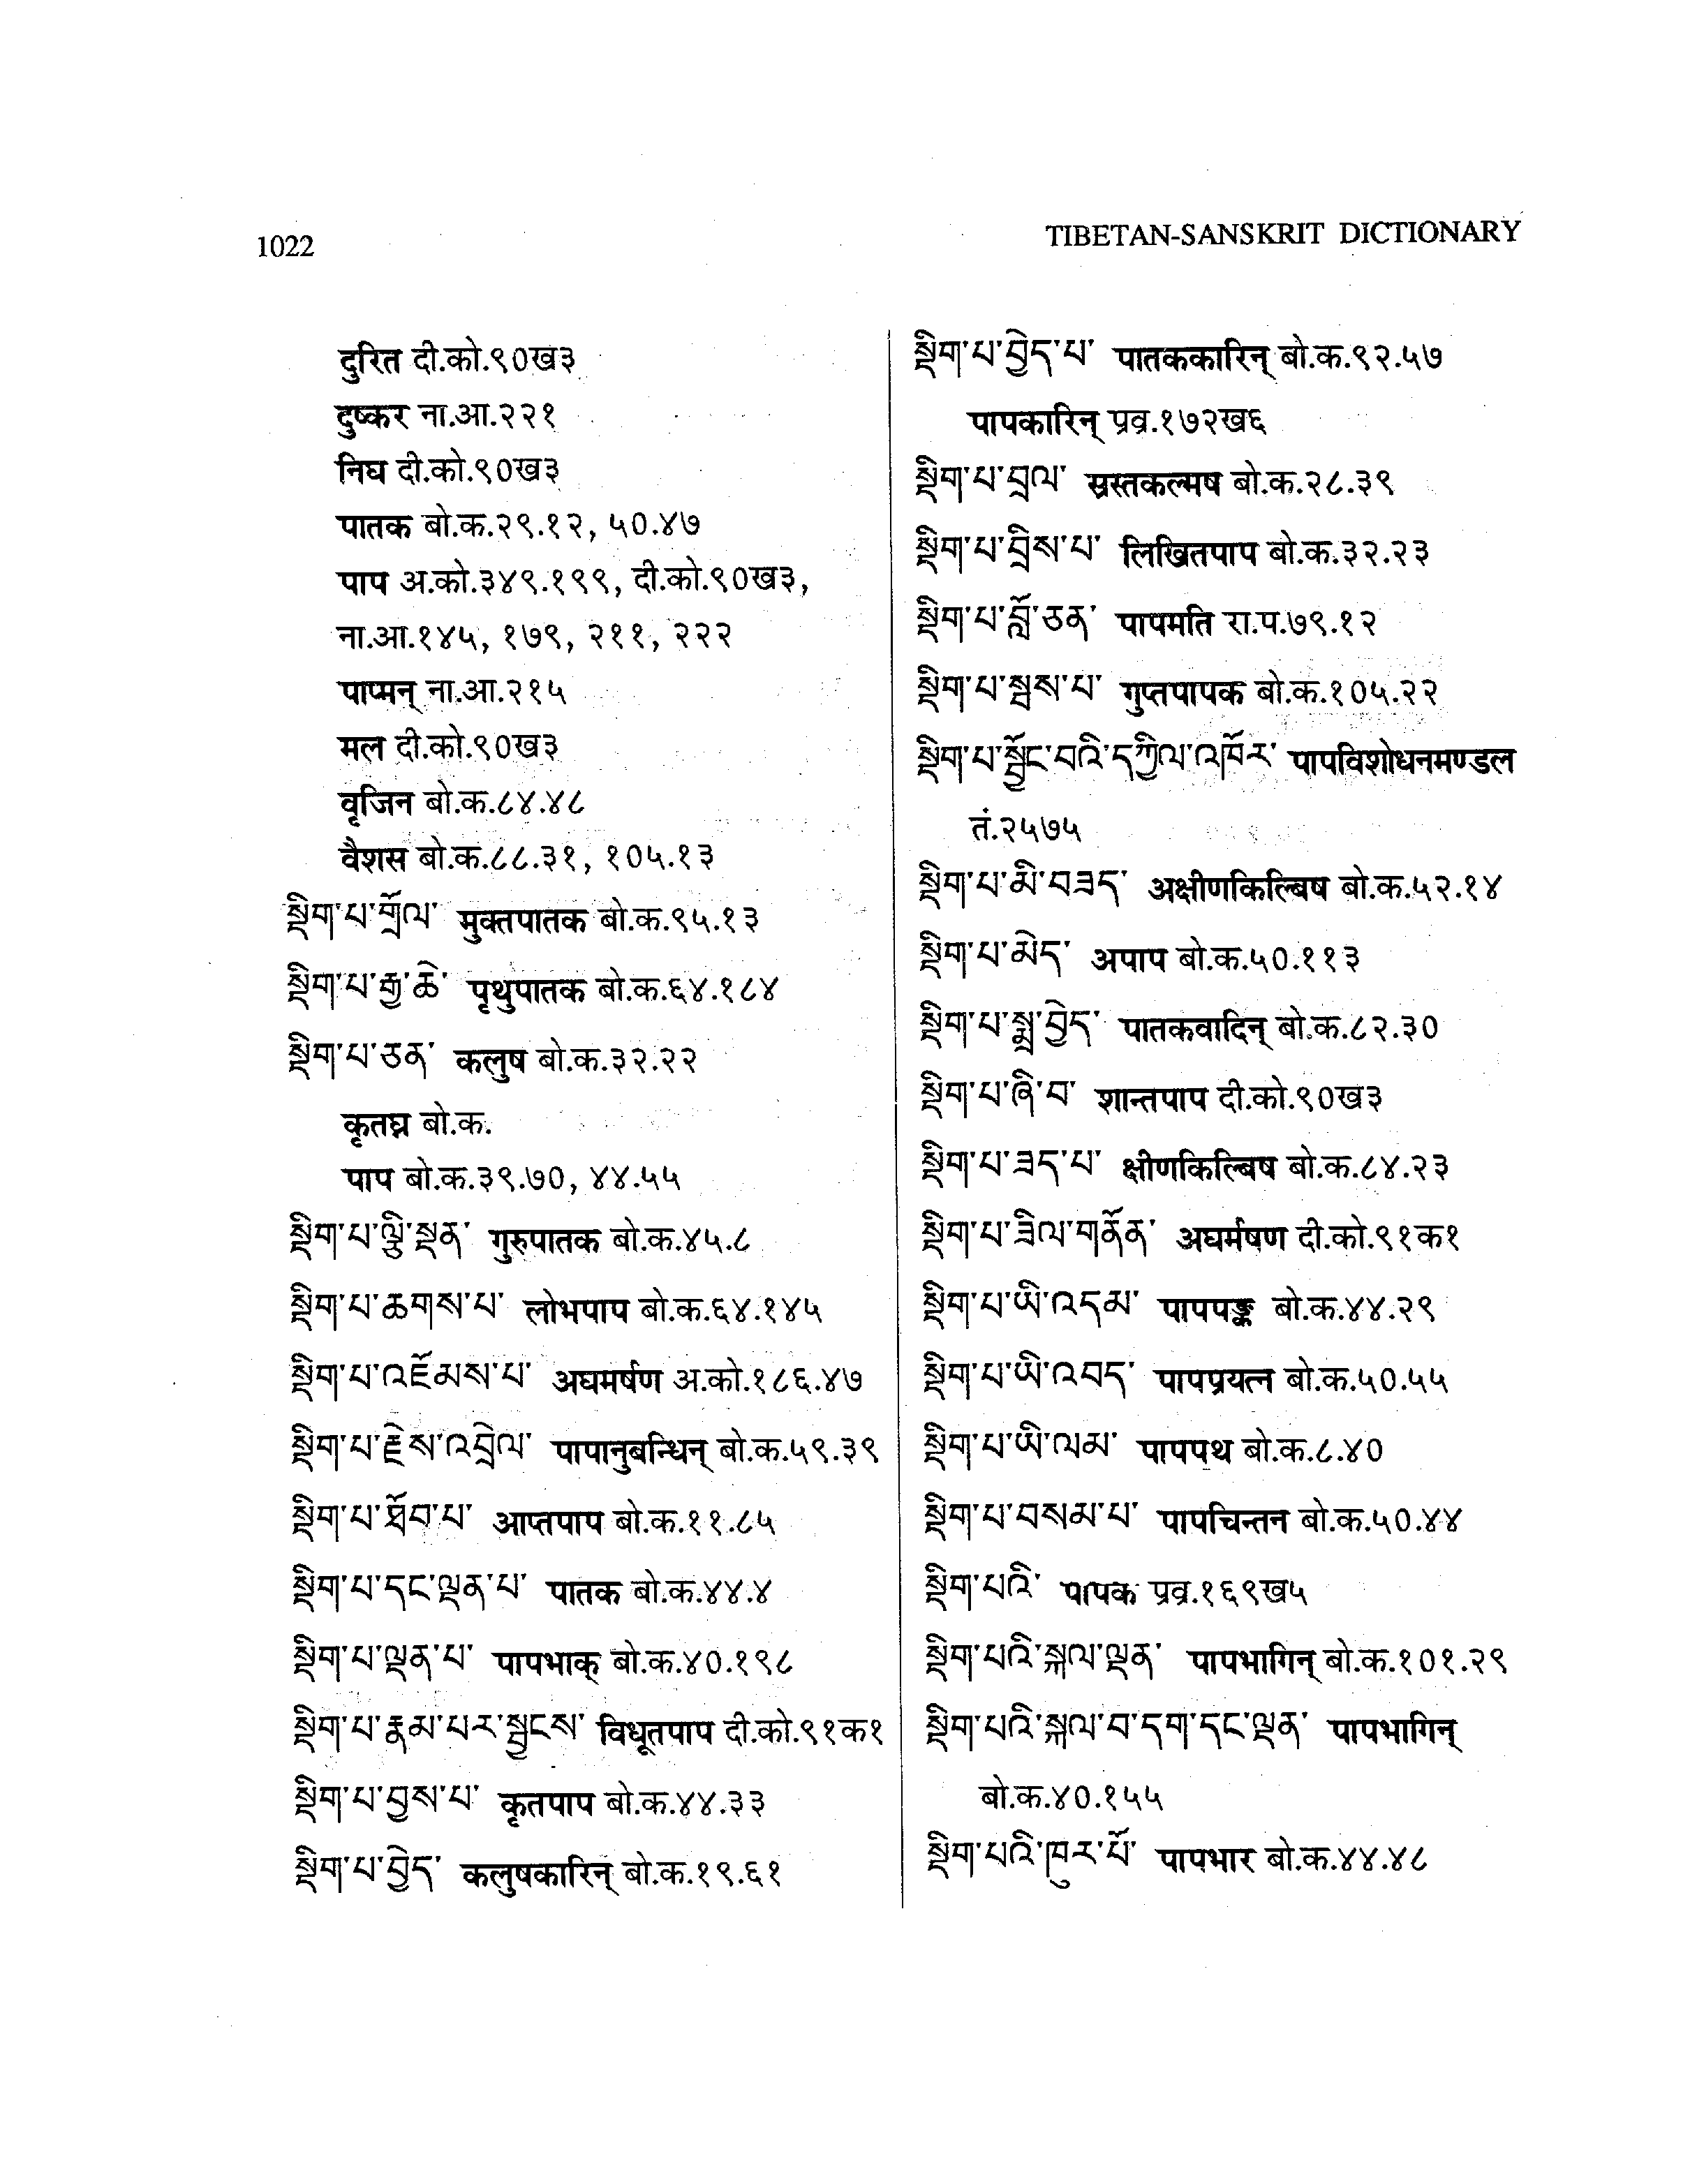 1022
TIBETAN-SANSKRIT DICTIONARY
दुरित दी.को.९०ख३
दुष्कर ना.आ.२२१
निघ दी.को.९०ख३
पातक बो.क.२९.१२, ५०.४७
पाप अ.को.३४९.१९९, दी.को.९०ख३,
ना.आ.१४५, १७९, २११, २२२
पाप्मन् ना.आ.२१५
मल दी.को.९०ख३
वृजिन बो.क.८४.४८
वैशस बो.क.८८.३१, १०५.१३
སྡིག་པ་གྲོལ་ मुक्तपातक बो.क.९५.१३
སྡིག་པ་རྒྱ་ཆེ་ पृथुपातक बो.क.६४.१८४
སྡིག་པ་ཅན་ कलुष बो.क.३२.२२
कृतघ्न बो.क.
पाप बो.क.३९.७०, ४४.५५
སྡིག་པ་ལྕི་སྡན་ गुरुपातक बो.क.४५.८
སྡིག་པ་ཆགས་པ་ लोभपाप बो.क.६४.१४५
སྡིག་པ་འཇོམས་པ་ अघमर्षण अ.को.१८६.४७
སྡིག་པ་རྗེས་འབྲེལ་ पापानुबन्धिन् बो.क.५९.३९
སྡིག་པ་ཐོབ་པ་ आप्तपाप बो.क.११.८५
སྡིག་པ་དང་ལྡན་པ་ पातक बो.क.४४.४
སྡིག་པ་ལྡན་པ་ पापभाक् बो.क.४०.१९८
སྡིག་པ་རྣམ་པར་སྦྱངས་ विधूतपाप दी.को.९१क१
སྡིག་པ་བྱས་པ་ कृतपाप बो.क.४४.३३
སྡིག་པ་བྱེད་ कलुषकारिन् बो.क.१९.६१
སྡིག་པ་བྱེད་པ་ पातककारिन् बो.क.९२.५७
पापकारिन् प्रव्र.१७२ख६
སྡིག་པ་བྲལ་ स्रस्तकल्मष बो.क.२८.३९
སྡིག་པ་བྲིས་པ་ लिखितपाप बो.क.३२.२३
སྡིག་པ་བློ་ཅན་ पापमति रा.प.७९.१२
སྡིག་པ་སྦས་པ་ गुप्तपापक बो.क.१०५.२२
སྡིག་པ་སྦྱོང་བའི་དཀྱིལ་འཁོར་ पापविशोधनमण्डल
तं.२५७५
སྡིག་པ་མི་བཟད་ अक्षीणकिल्बिष बो.क.५२.१४
སྡིག་པ་མེད་ अपाप बो.क.५०.११३
སྡིག་པ་སྨྲ་བྱེད་ पातकवादिन् बो.क.८२.३०
སྡིག་པ་ཞི་བ་ शान्तपाप दी.को.९०ख३
སྡིག་པ་ཟད་པ་ क्षीणकिल्बिष बो.क.८४.२३
སྡིག་པ་ཟིལ་གནོན་ अघर्मषण दी.को.९१क१
སྡིག་པ་ཡི་འདམ་ पापपङ्क बो.क.४४.२९
སྡིག་པ་ཡི་འབད་ पापप्रयत्न बो.क.५०.५५
སྡིག་པ་ཡི་ལམ་ पापपथ बो.क.८.४०
སྡིག་པ་བསམ་པ་ पापचिन्तन बो.क.५०.४४
སྡིག་པའི་ पापक प्रव्र.१६९ख५
སྡིག་པའི་སྐལ་ལྡན་ पापभागिन् बो.क.१०१.२९
སྡིག་པའི་སྐལ་བ་དག་དང་ལྡན་ पापभागिन्
बो.क.४०.१५५
སྡིག་པའི་ཁུར་པོ་ पापभार बो.क.४४.४८